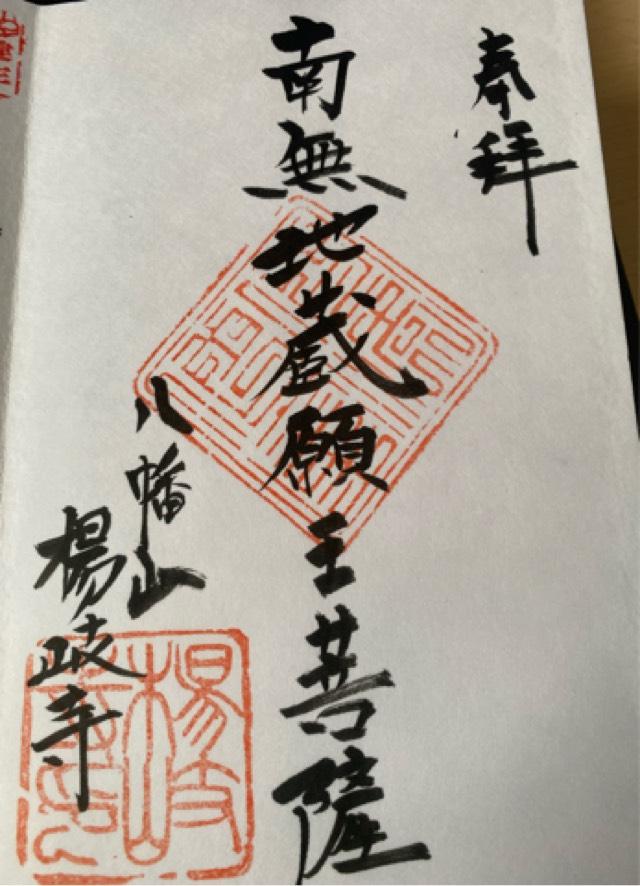 奉拝
南無地蔵願王菩薩
八幡山
楊岐寺